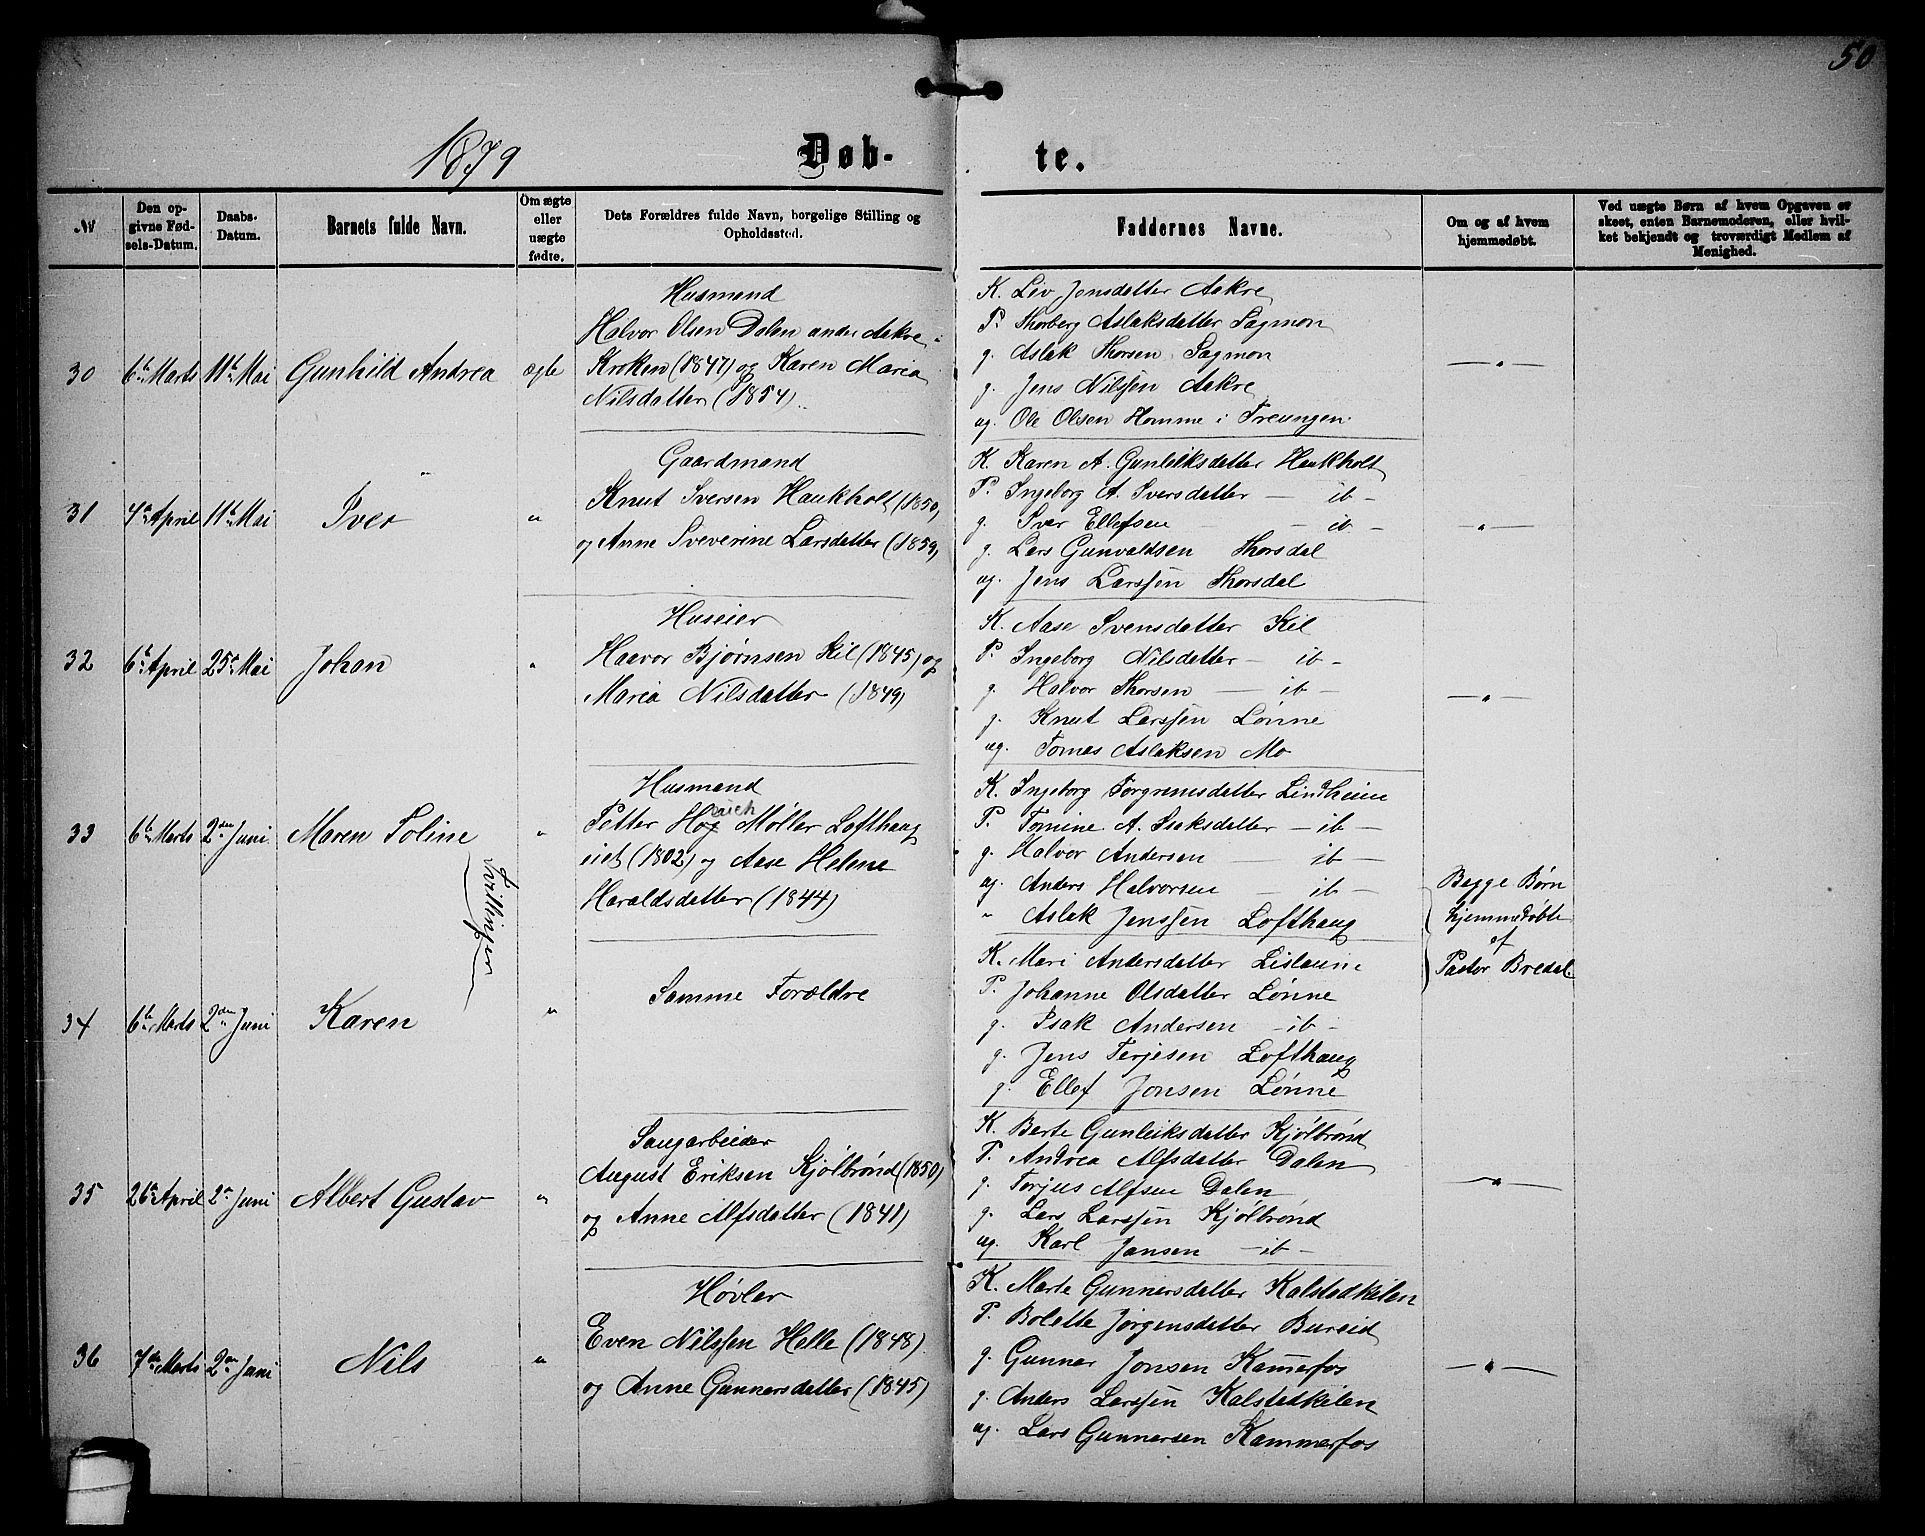 50
1879
Døb-
te.
№
Den op-
givne Fød-
sels-Datum.
Daabs-
Datum.
Barnets fulde Navn.
Om ægte
eller
uægte
fødte.
Dets Forældres fulde Navn, borgelige Stilling og
Opholdssted.
Faddernes Navne.
Om og af hvem
hjemmedøbt.
Ved uægte Børn af hvem Opgaven er
skeet, enten Barnemoderen, eller hvil-
ket bekjendt og troværdigt Medlem af
Menighed.
30 6te Marts 11te Mai Gunhild Andrea ægte
Husmand
Halvor Olsen Dalen under Aakre i
Kroken (1847) og Karen Maria
Nilsdatter (1854).
K. Liv Jensdatter Aakre
P. Thorberg Aslaksdatter Sagmon
g. Aslak Thorsen Sagmon
g. Jens Nilssen Aakre
ug. Ole Olsen Homme i Treungen.
— " —
31 4de April 11te Mai Iver "
Gaardmand
Knut Iversen Haukholt (1850)
og Anne Severine Larsdatter (1859)
K. Karen A. Gunleiksdatter Haukholt
P. Ingeborg A. Iversdatter — ib —
g. Iver Ellefsen — ib —
g. Lars Gunvaldsen Thorsdal
ug. Jens Larssen Thorsdal
— " —
32 6te April 25de Mai Johan "
Huseier
Haavor Bjørnsen Kil (1845) og
Maria Nilsdatter (1849)
K. Aase Svensdatter Kil
P. Ingeborg Nilsdatter — ib —
g. Halvor Thorsen — ib —
g. Knut Larssen Lønne
ug. Tomas Aslaksen Mo
— " —
33 6te Marts 2den Juni Maren Toline "
Tvillinger
Husmand
Petter Høg Møller Lofthaug
eiet (1802) og Aase Helene
Haraldsdatter (1844)
K. Ingeborg Torgrimsdatter Lindheim
P. Tomine A. Isaksdatter — ib —
g. Halvor Andersen — ib —
ug. Anders Halvorsen — ib —
" Aslak Jenssen Lofthaug
Begge Børn
hjemmedøbte
af
Pastor Bredal.
34 6te Marts 2den Juni Karen "
Samme Forældre
K. Mari Andersdatter Lislaunn
P. Johanne Olsdatter Lønne
g. Isak Andersen — ib —
g. Jens Terjesen Lofthaug
g. Ellef Jonsen Lønne
35 26de April 2den Juni Albert Gustav "
Saugarbeider
August Eriksen Kjølbrønd (1850)
og Anne Alfsdatter (1841)
K. Berte Gunleiksdatter Kjølbrønd
P. Andrea Alfsdatter Dalen
g. Torjus Alfsen Dalen
g. Lars Larssen Kjølbrønd
ug. Karl Jansen — ib —
— " —
36 7de Marts 2den Juni Nils "
Høvler
Even Nilssen Helle (1848)
og Anne Gunnarsdatter (1845)
K. Marte Gunnarsdatter Kalstadkilen
P. Bolette Jørgensdatter Bureid
g. Gunnar Jonsen Kamerfos
g. Anders Larssen Kalstadkilen
ug. Lars Gunnarsen Kammerfos
— " —